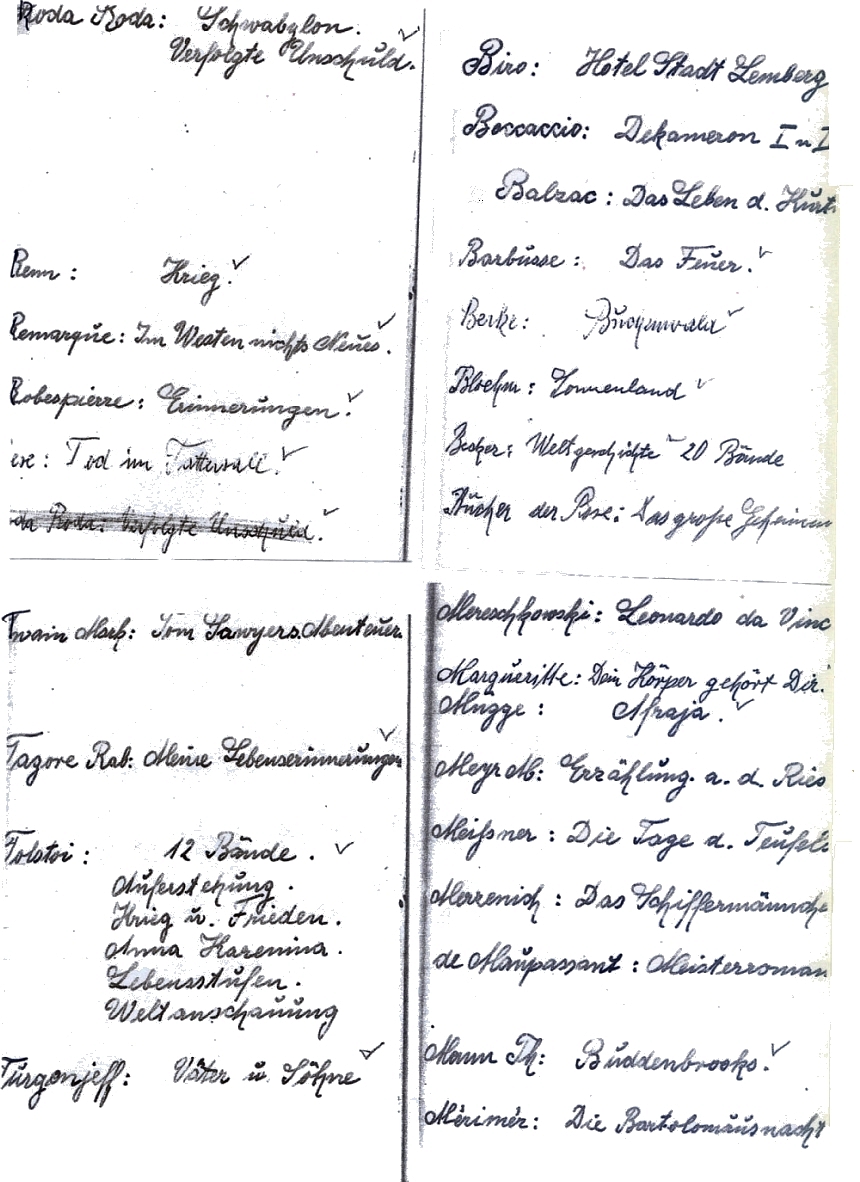 Roda Roda: Schwabylon.
Verfolgte Unschuld.
Renn: Krieg.
Remarque: Im Westen nichts Neues.
Robespierre: Erinnerungen.
ese: Tod im Tattersall.
da Roda: Verfolgte Unschuld.
Biro: Hotel Stadt Lemberg
Boccaccio: Dekameron I u I
Balzac: Das Leben d. Kurt
Barbusse: Das Feuer.
Berke: Buchenwald
Bloehm: Sonnenland
Becker: Weltgeschichte 20 Bände
Bücher der Rose: Das große Geheimn
Twain Mark: Tom Sawyers Abenteuer.
Tagore Rab: Meine Lebenserinnerungen
Tolstoi: 12 Bände.
Auferstehung.
Krieg u. Frieden.
Anna Karenina.
Lebensstufen.
Weltanschauung
Turgenjeff: Väter u Söhne
Mereschkowski: Leonardo da Vinc
Margueritte: Dein Körper gehört Dir.
Mügge: Afraja.
Meyr M: Erzählung. a. d. Ries
Meißner: Die Tage d. Teufels
Merzenich: Das Schiffermännche
de Maupassant: Meisterroman
Mann Th: Buddenbrooks.
Mérimér: Die Bartolomäusnacht